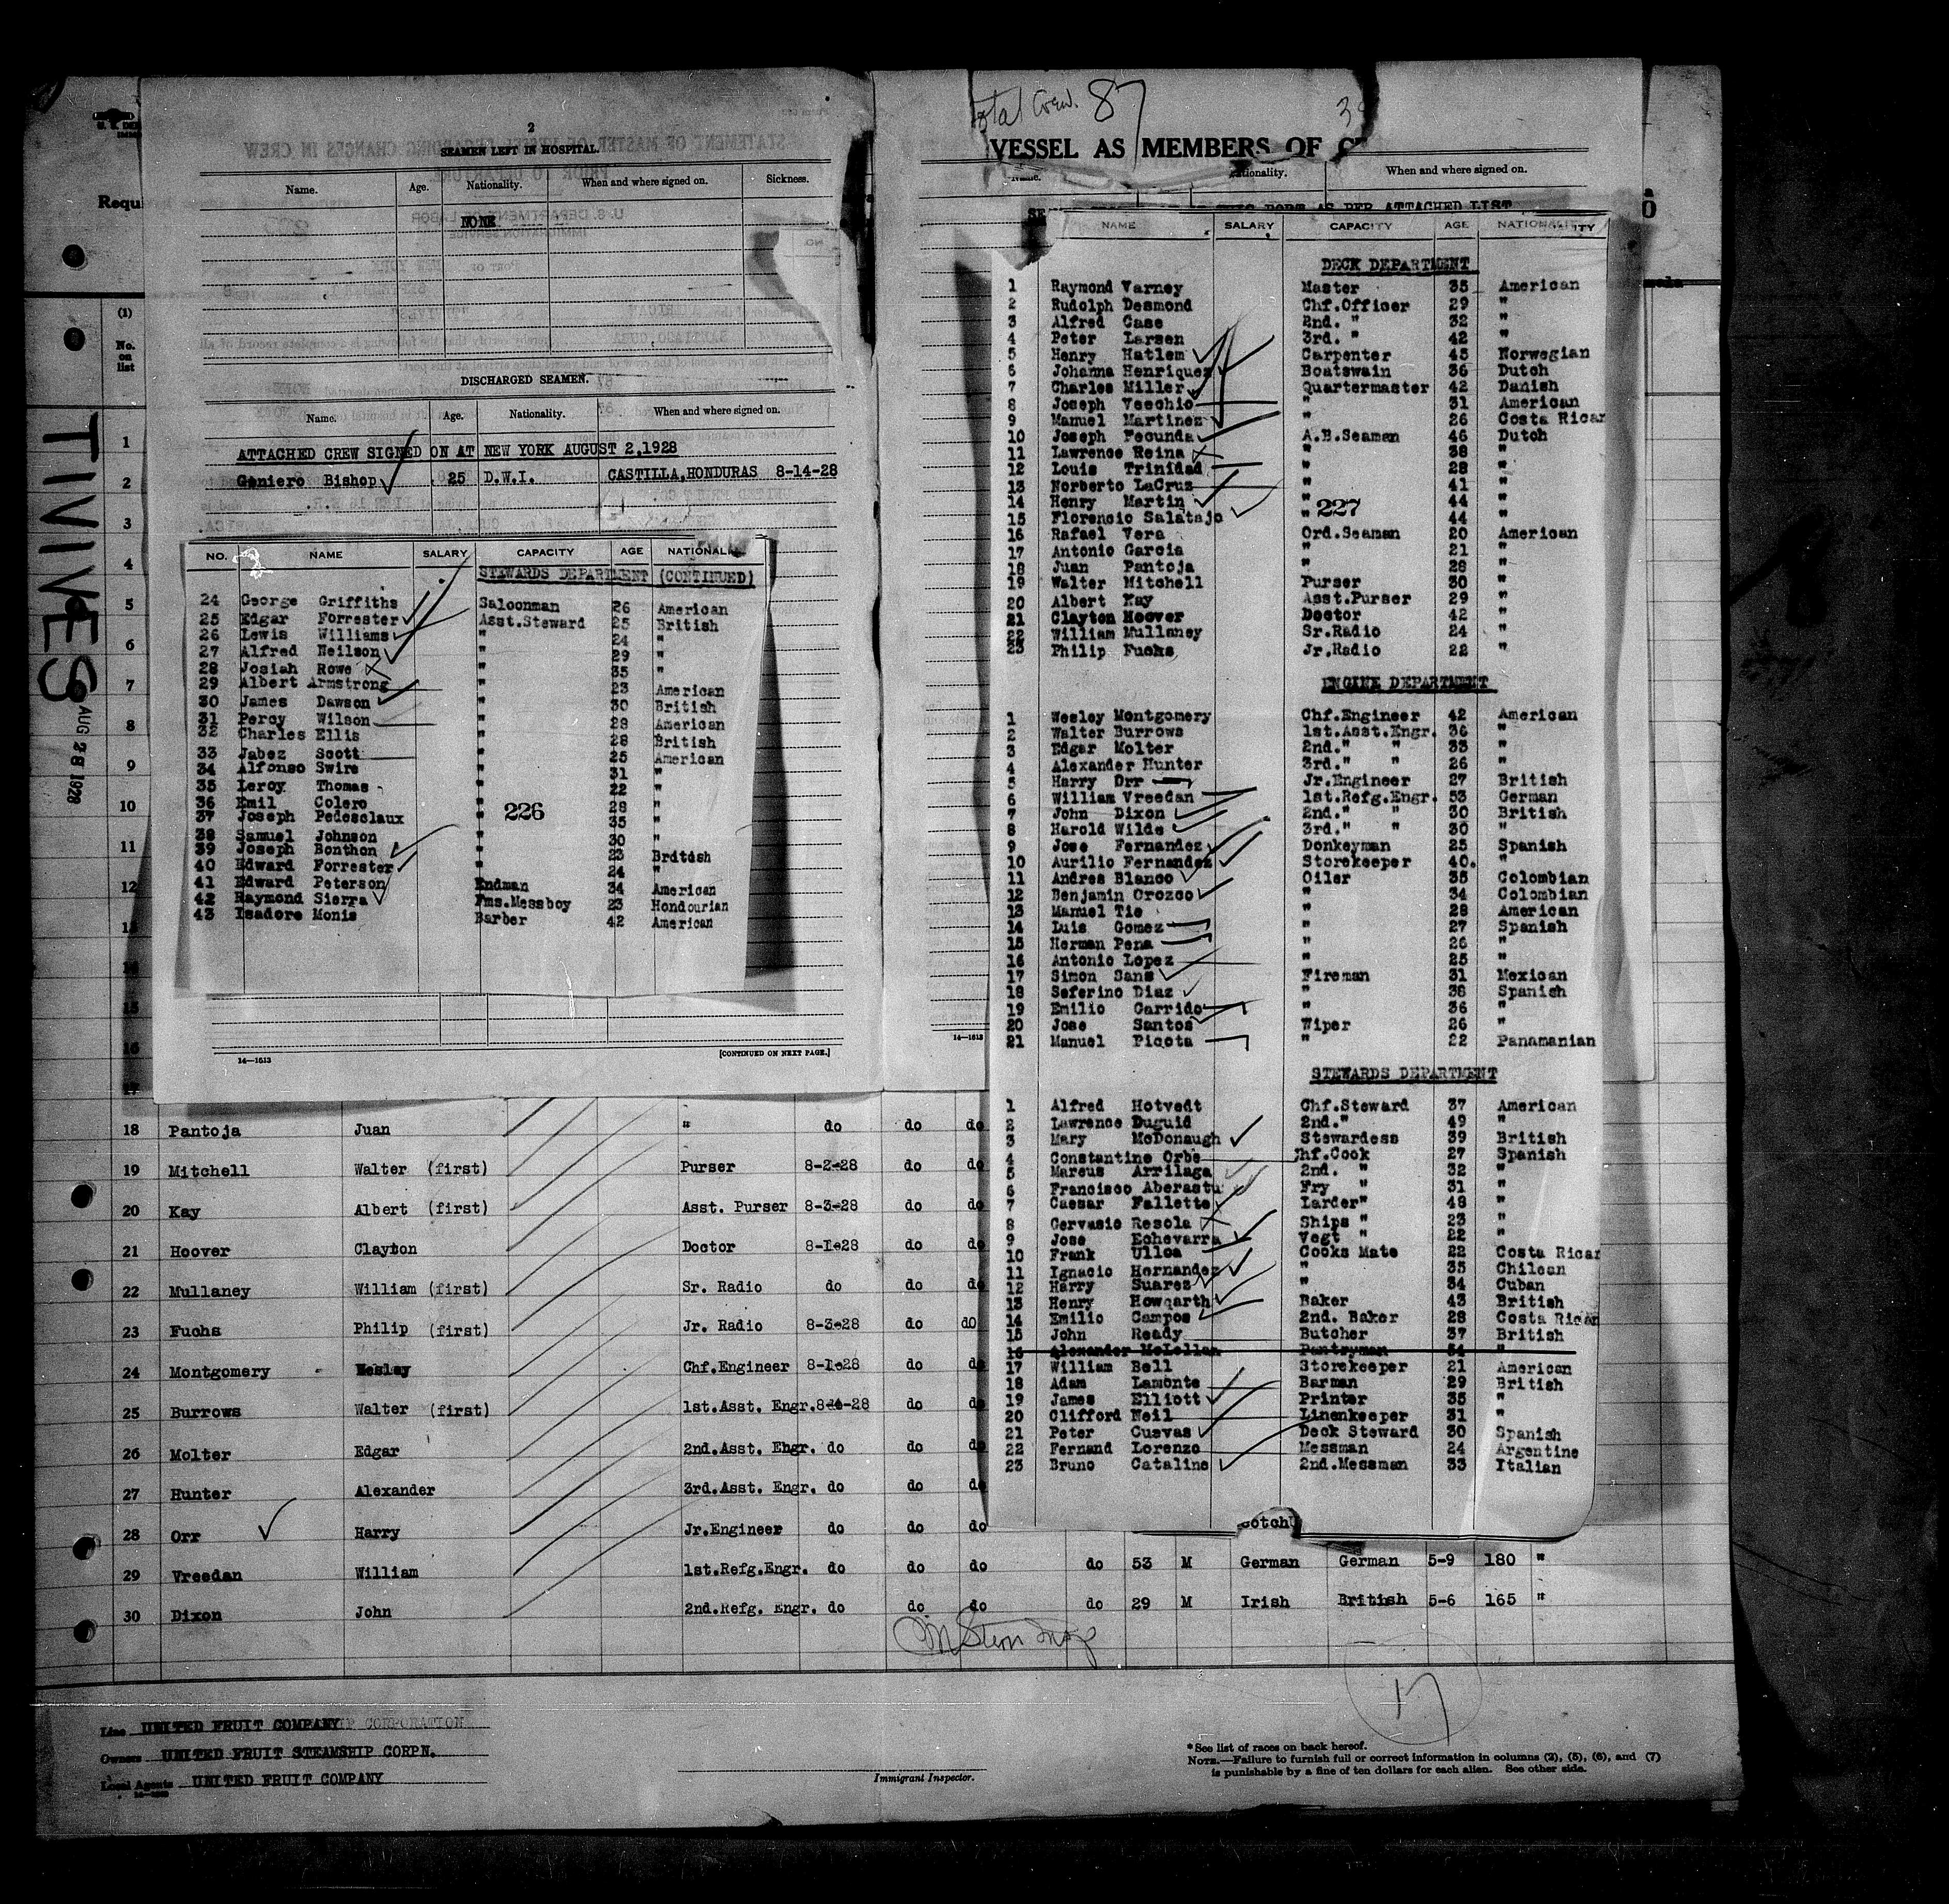 Total Crew. 87
VESSEL AS MEMBERS OF
2
SEAMEN LEFT IN HOSPITAL.
Name. Age. Nationality. When and where signed on. Sickness.
NONE
DISCHARGED SEAMEN.
Name. Age. Nationality. When and where signed on.
ATTACHED CREW SIGNED ON AT NEW YORK AUGUST 2,1928
Geniero Bishop 25 D.W.I. CASTILLA,HONDURAS 8-14-28
NO. NAME SALARY CAPACITY AGE
STEWARDS DEPARTMENT (CONTINUED)
24 George Griffiths Saloonman 26 American
25 Edgar Forrester Asst.Steward 25 British
26 Lewis Williams " 24 "
27 Alfred Neilson " 29 "
28 Josiah Rowe " 35 "
29 Albert Armstrong " 23 American
30 James Dawson " 30 British
31 Percy Wilson " 28 American
32 Charles Ellis " 28 British
33 Jabez Scott " 25 American
34 Alfonso Swire " 31 "
35 Leroy Thomas " 22 "
36 Emil Colero " 28 "
37 Joseph Pedesclaux " 35 "
226
38 Samuel Johnson " 30 "
39 Joseph Bonthon " 23 British
40 Edward Forrester " 24 "
41 Edward Peterson Endman 34 American
42 Raymond Sierra Fms.Messboy 23 Hondourian
43 Isadore Monis Barber 42 American
14—1513
[CONTINUED ON NEXT PAGE.]
When and where signed on.
NAME SALARY CAPACITY AGE
DECK DEPARTMENT
1 Raymond Varney Master 35 American
2 Rudolph Desmond Chf.Officer 29 "
3 Alfred Case 2nd. " 32 "
4 Peter Larsen 3rd. " 42 "
5 Henry Hatlem Carpenter 45 Norwegian
6 Johanna Henriquez Boatswain 36 Dutch
7 Charles Miller Quartermaster 42 Danish
8 Joseph Vecchio " 31 American
9 Manuel Martinez " 26 Costa Rican
10 Joseph Fecunda A.B.Seaman 46 Dutch
11 Lawrence Reina " 38 "
12 Louis Trinidad " 28 "
13 Norberto LaCruz " 41 "
14 Henry Martin " 44 "
227
15 Florencio Salatajo " 44 "
16 Rafael Vera Ord.Seaman 20 American
17 Antonio Garcia " 21 "
18 Juan Pantoja " 28 "
19 Walter Mitchell Purser 30 "
20 Albert Kay Asst.Purser 29 "
21 Clayton Hoover Doctor 42 "
22 William Mullaney Sr.Radio 24 "
23 Philip Fuchs Jr.Radio 22 "
ENGINE DEPARTMENT
1 Wesley Montgomery Chf.Engineer 42 American
2 Walter Burrows 1st.Asst.Engr. 36 "
3 Edgar Molter 2nd." " 33 "
4 Alexander Hunter 3rd." " 26 "
5 Harry Orr Jr.Engineer 27 British
6 William Vreedan 1st.Refg.Engr. 53 German
7 John Dixon 2nd." " 30 British
8 Harold Wilde 3rd." " 30 "
9 Jose Fernandez Donkeyman 25 Spanish
10 Aurilio Fernandez Storekeeper 40. "
11 Andres Blanco Oiler 35 Colombian
12 Benjamin Orozco " 34 Colombian
13 Manuel Tie " 28 American
14 Luis Gomez " 27 Spanish
15 Herman Pena " 26 "
16 Antonio Lopez " 25 "
17 Simon Sans Fireman 31 Mexican
18 Seferino Diaz " 38 Spanish
19 Emilio Garrido " 36 "
20 Jose Santos Wiper 26 "
21 Manuel Picota " 22 Panamanian
STEWARDS DEPARTMENT
1 Alfred Hotvedt Chf.Steward 37 American
2 Lawrence Duguid 2nd." 49 "
3 Mary McDonaugh Stewardess 39 British
4 Constantine Orbe Chf.Cook 27 Spanish
5 Marcus Arrilaga 2nd. " 32 "
6 Francisco Aberastu Fry " 31 "
7 Caesar Fallette Larder" 48 "
8 Gervasio Resola Ships " 23 "
9 Jose Echevarra Vegt " 22 "
10 Frank Ulloa Cooks Mate 22 Costa Rican
11 Ignacio Hernandez " 35 Chilean
12 Harry Suarez " 34 Cuban
13 Henry Howqarth Baker 43 British
14 Emilio Campos 2nd. Baker 28 Costa Rican
15 John Ready Butcher 37 British
16 Alexander McLellan Pantryman 54 "
17 William Bell Storekeeper 21 American
18 Adam Lamonte Barman 29 British
19 James Elliott Printer 35 "
20 Clifford Neil Linenkeeper 31 "
21 Peter Cuevas Deck Steward 30 Spanish
22 Fernand Lorenzo Messman 24 Argentine
23 Bruno Cataline 2nd.Messman 33 Italian
Requ
(1)
No. on list
TIVIVES
AUG 28 1928
1
2
3
4
5
6
7
8
9
10
11
12
15
16
17
18 Pantoja Juan " do do do
19 Mitchell Walter (first) Purser 8-2-28 do do
20 Kay Albert (first) Asst. Purser 8-3-28 do do
21 Hoover Clayton Doctor 8-1-28 do do
22 Mullaney William (first) Sr. Radio do do do
23 Fuchs Philip (first) Jr. Radio 8-3-28 do do
24 Montgomery Wesley Chf.Engineer 8-1-28 do do
25 Burrows Walter (first) 1st.Asst. Engr. do do
26 Molter Edgar 2nd.Asst. Engr. do do do
27 Hunter Alexander 3rd.Asst. Engr. do do do
28 Orr Harry Jr.Engineer do do do
29 Vreedan William 1st.Refg.Engr. do do do do 53 M German German 5-9 180 "
30 Dixon John 2nd.Refg. Engr. do do do do 29 M Irish British 5-6 165 "
17
Line UNITED FRUIT COMPANY
Owners UNITED FRUIT STEAMSHIP CORPN.
Local Agents UNITED FRUIT COMPANY
Immigrant Inspector.
*See list of races on back hereof.
NOTE.—Failure to furnish full or correct information in columns (2), (5), (6), and (7)
is punishable by a fine of ten dollars for each alien. See other side.